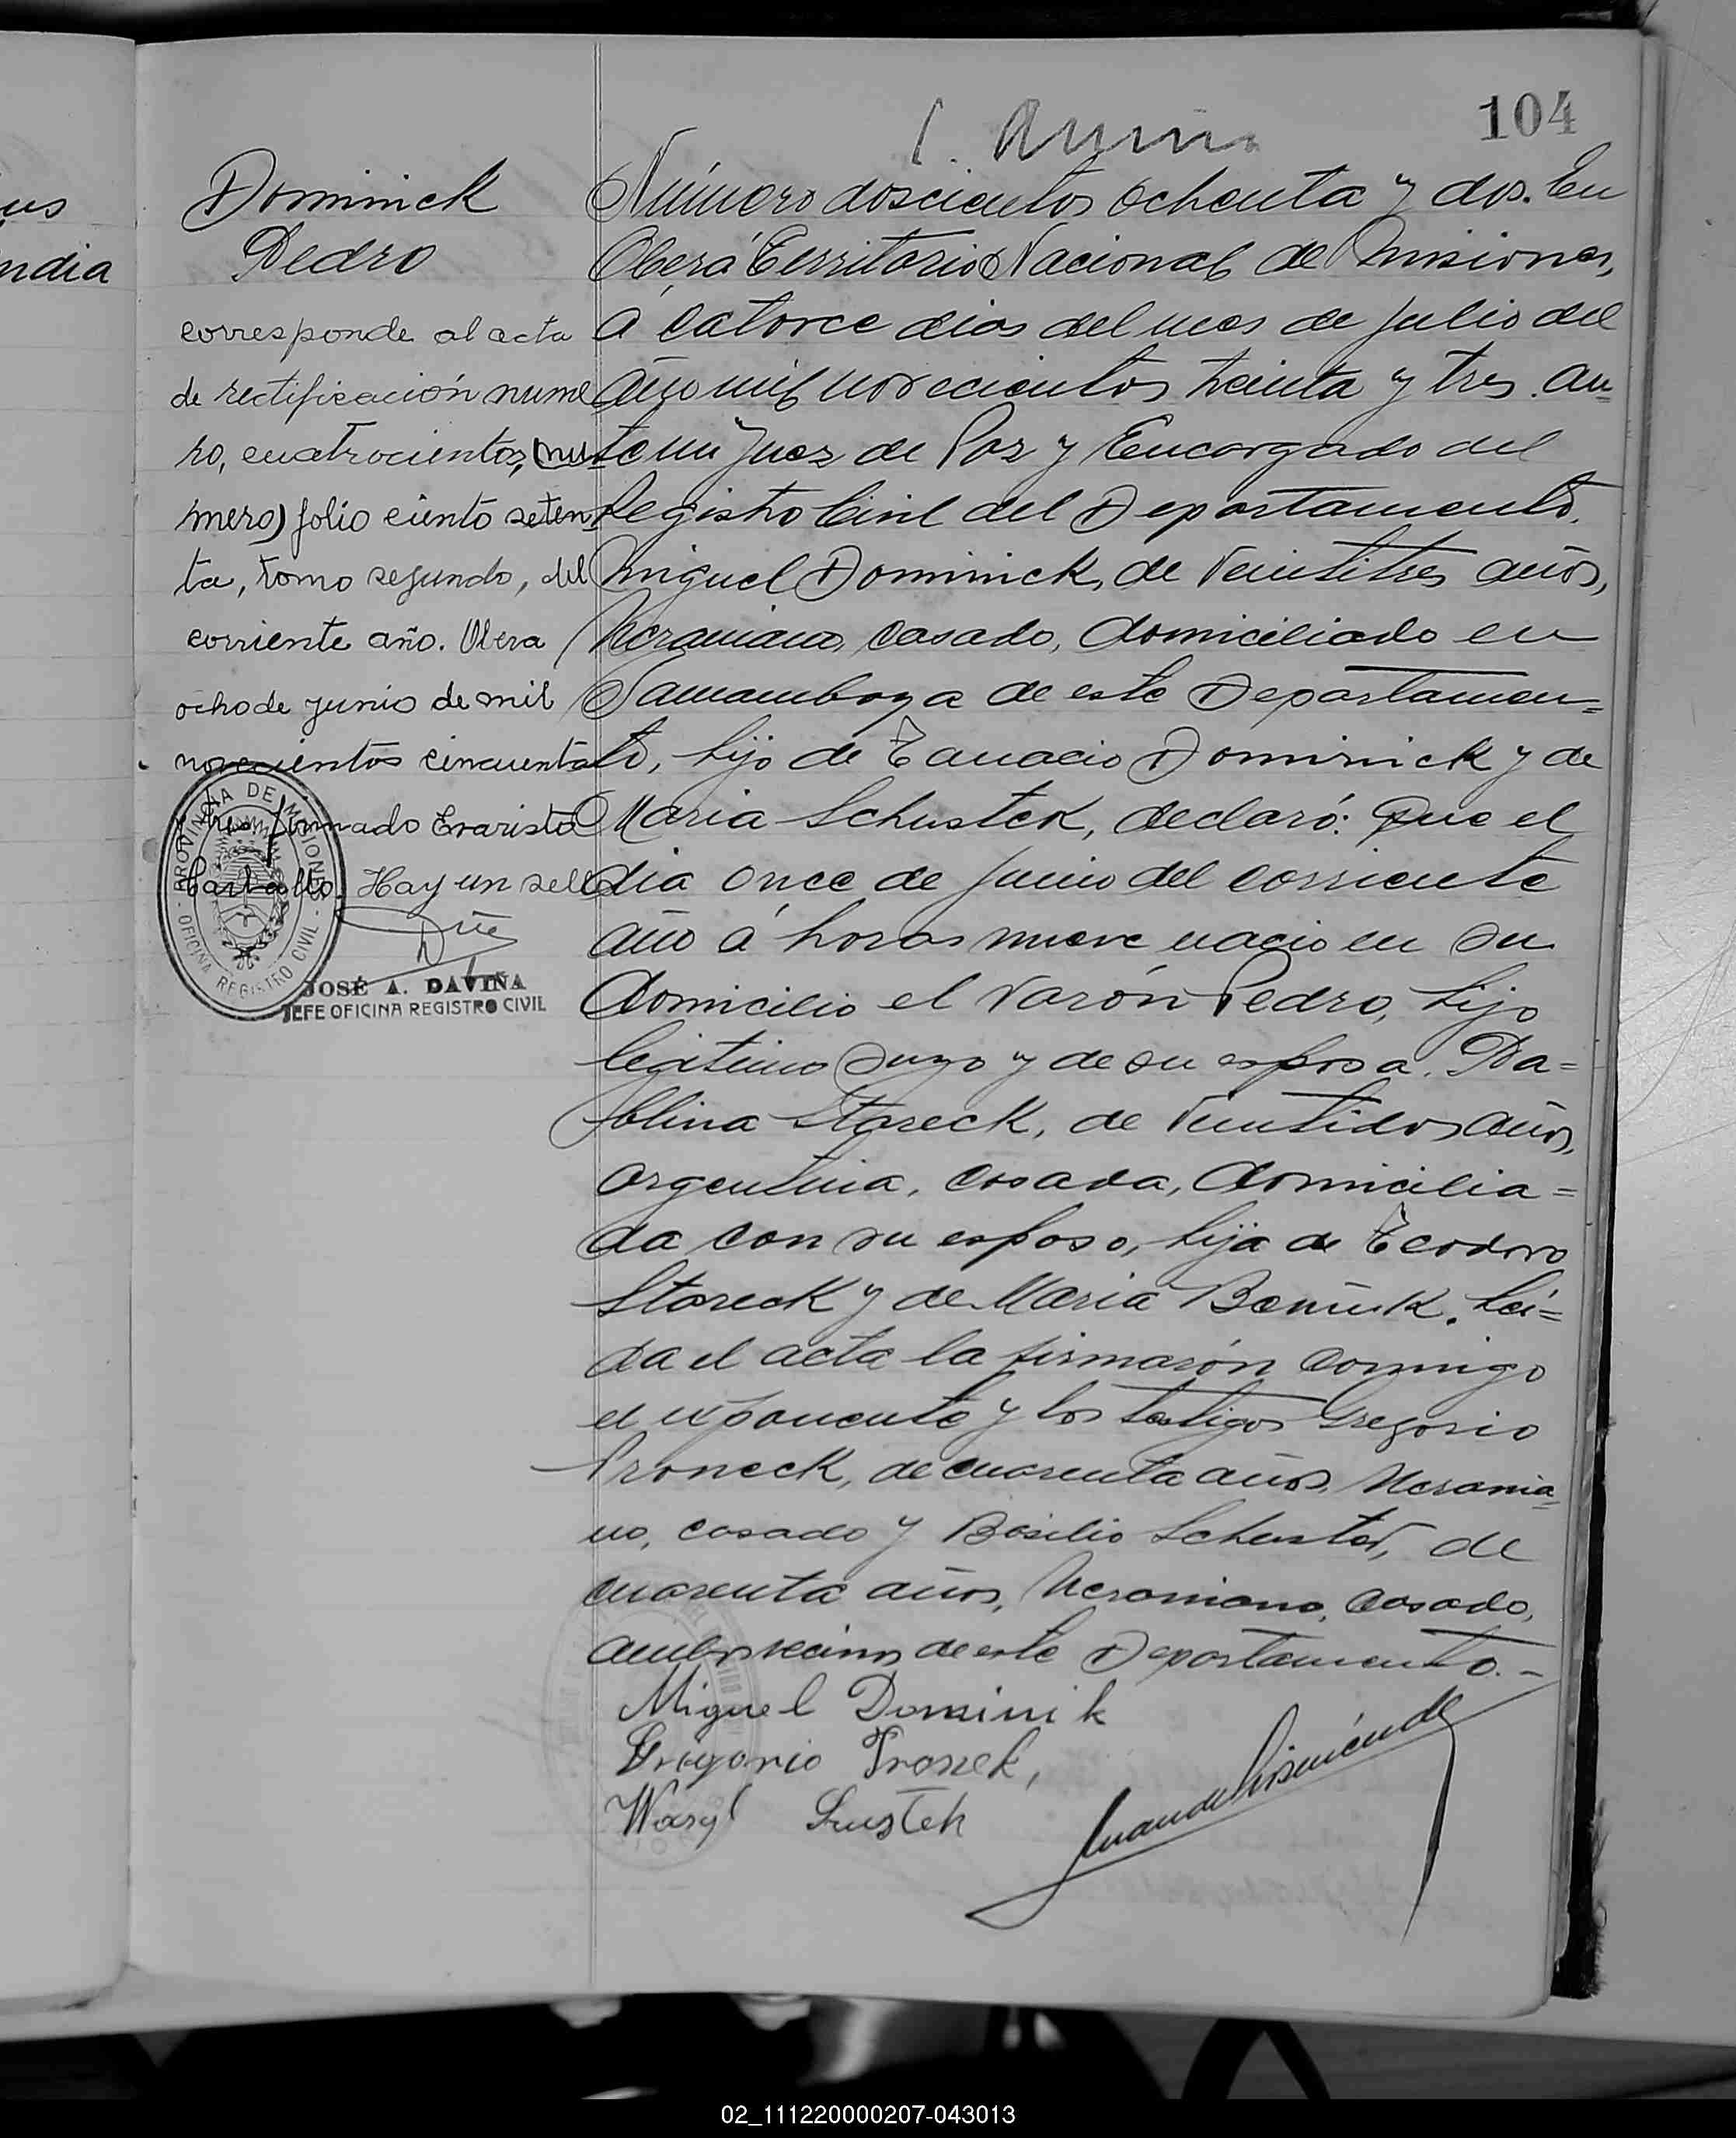 104
Dominick
Pedro
corresponde al acta
de rectificación nume
ro, cuatrocientos, (nu
mero) folio ciento seten
ta, tomo segundo, del
corriente año. Obera
ocho de junio de mil
novecientos cincuenta
y tres firmado Evaristo
Hay un sello
PROVINCIA DE MISIONES
OFICINA REGISTRO CIVIL
JOSÉ A. DAVIÑA
JEFE OFICINA REGISTRO CIVIL
Número doscientos ochenta y dos. En
Oberá Territorio Nacional de Misiones,
á catorce dias del mes de Julio del
año mil novecientos treinta y tres. an=
te mi Juez de Paz y Encargado del
Registro Civil del Departamento.
Miguel Dominick, de veintitres años,
Ucraniano, casado, domiciliado en
de este Departamen=
to, hijo de Tanacio Dominick y de
Maria Schustek, declaró: Que el
dia once de Junio del corriente
año á horas nueve nacio en su
domicilio el varón Pedro, hijo
legitimo suyo y de su esposa. Pa=
blina Stareck, de veintidos años,
argentina, casada, domicilia=
da con su esposo, hija de Teodoro
Stareck y de Maria Leí=
da el acta la firmarón conmigo
el exponente y los testigos Gregorio
Proneck, de cuarenta años, Ucrania=
no, casado y Basilio Schuster, de
cuarenta años, Ucraniano, casado,
ambos vecinos de este Departamento.-
Miguel Dominik
Gregorio Pronek,
Wasyl Sustek
us
ndia
02_111220000207-043013